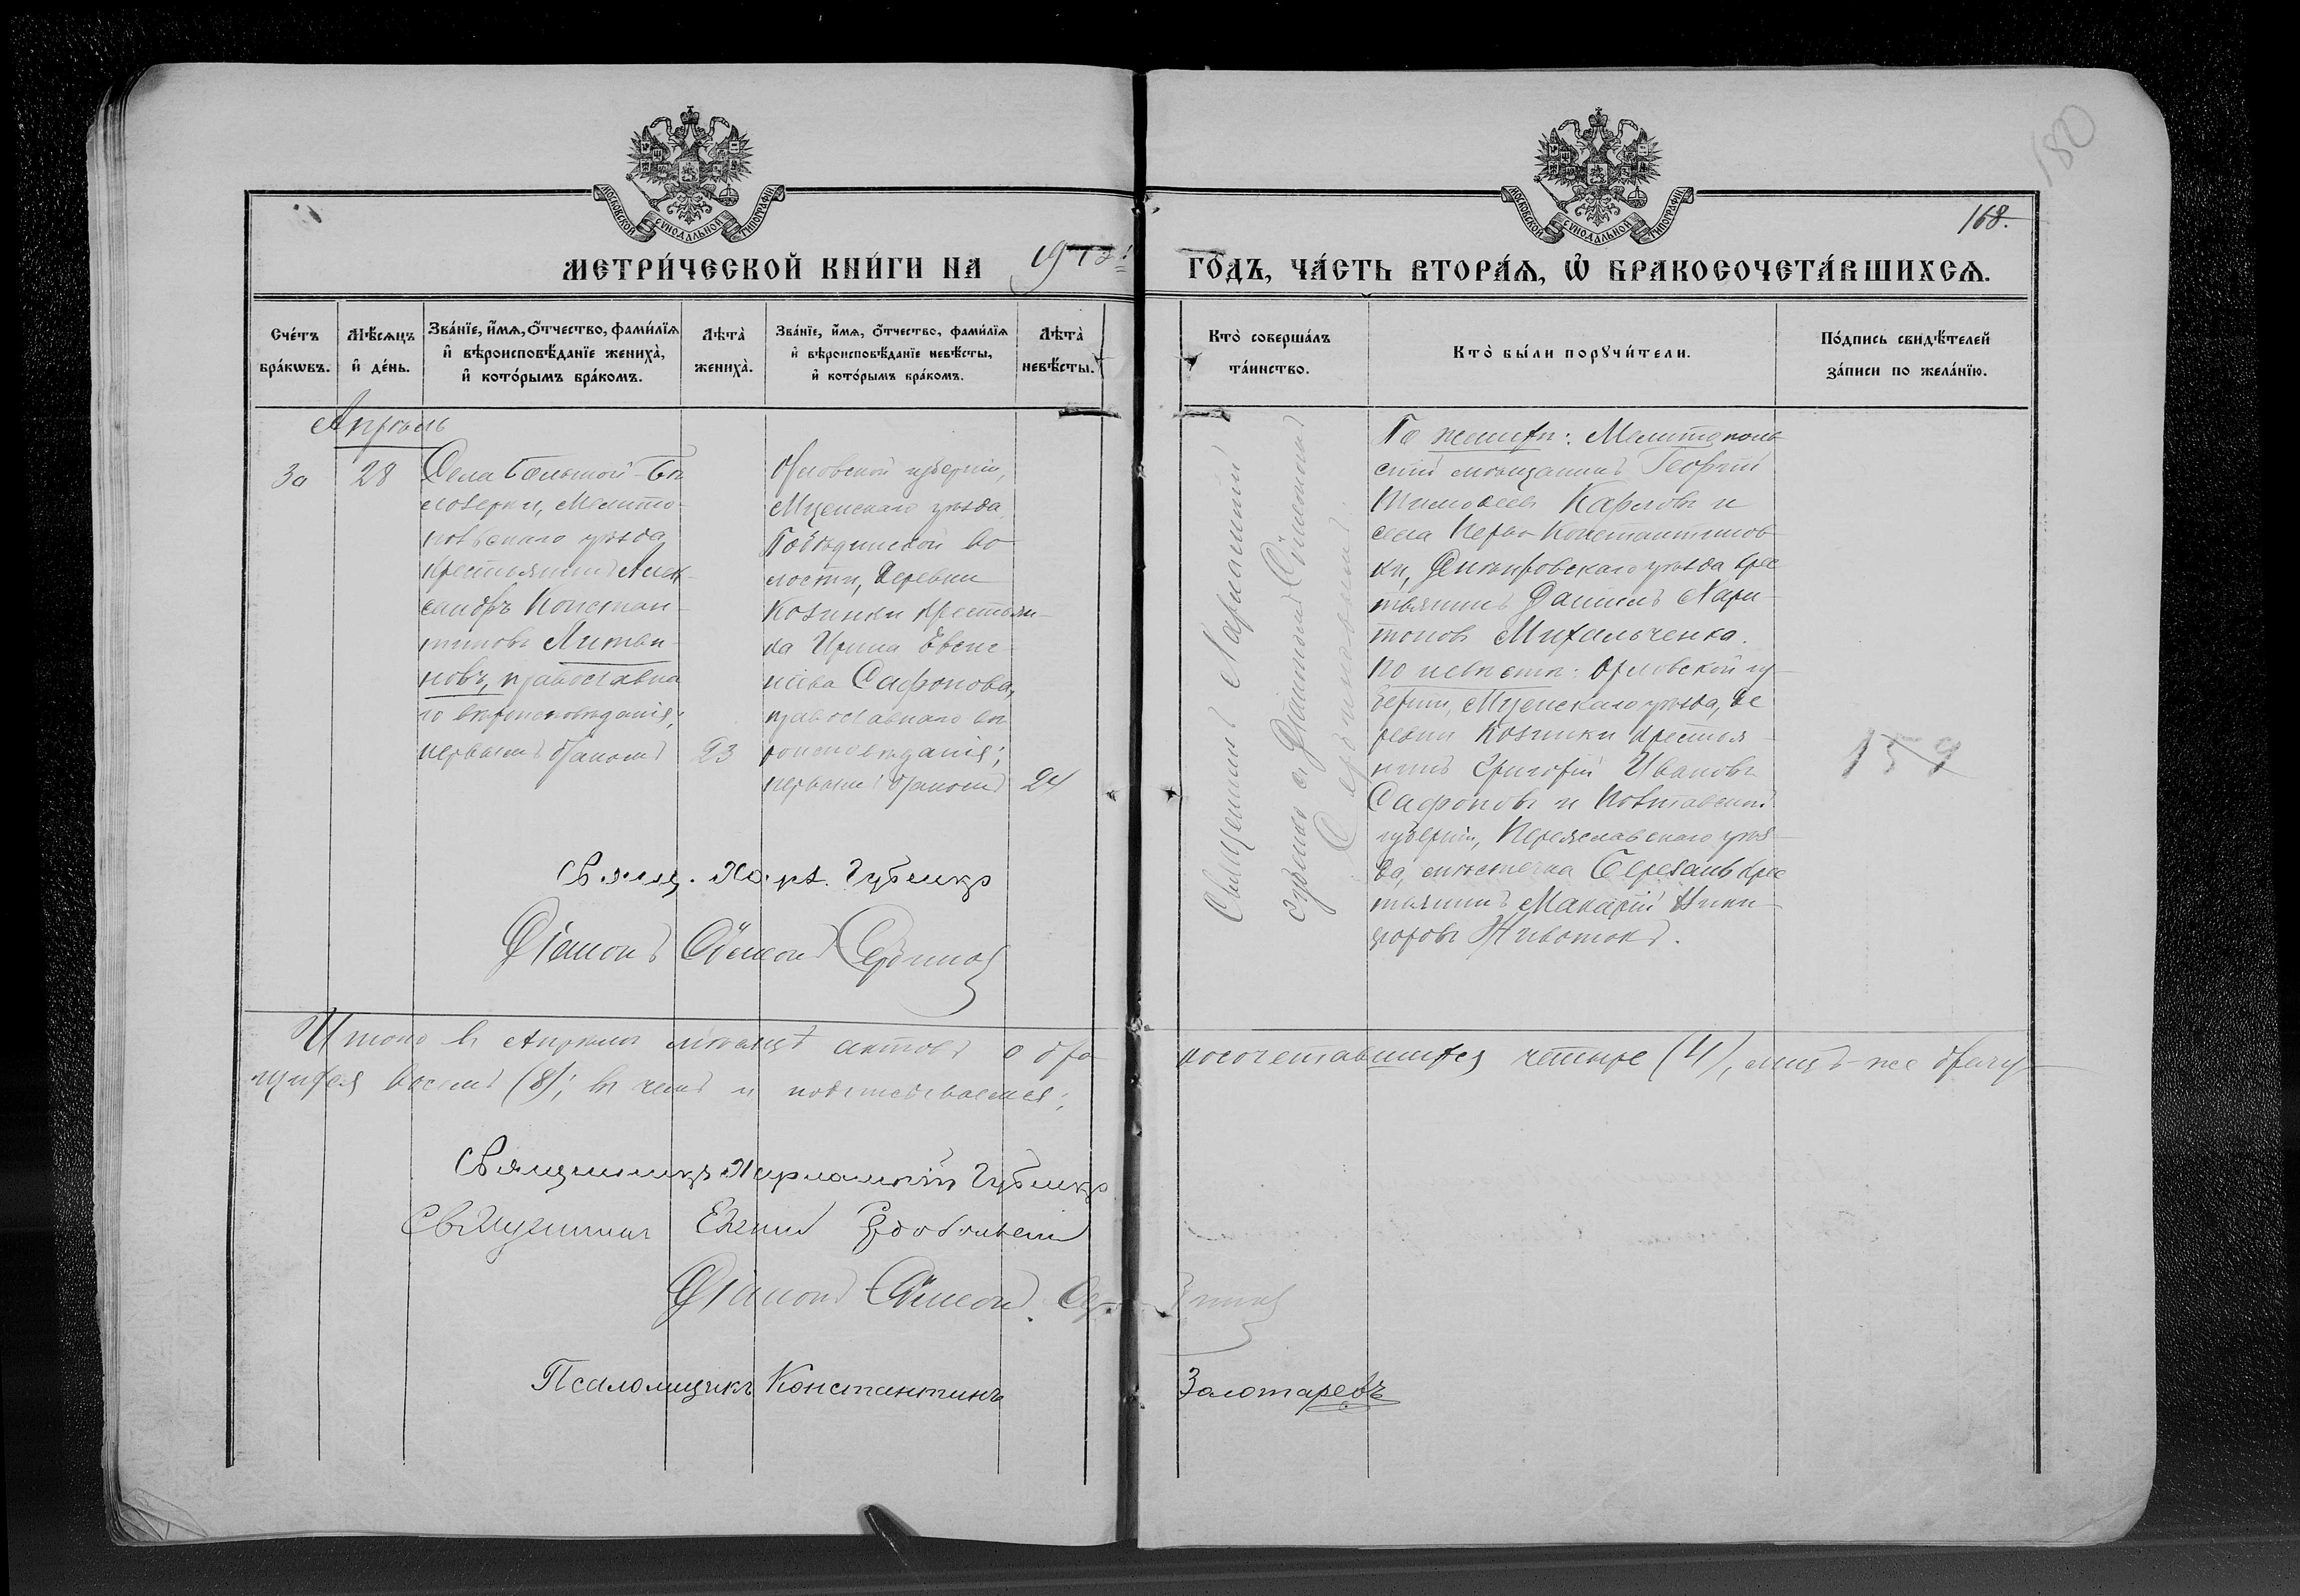 180
168.
МОСКОВСКОЙ СѴНОДАЛЬНОЙ ТИПОГРАФІИ
МОСКОВСКОЙ СѴНОДАЛЬНОЙ ТИПОГРАФІИ
МЕТРИ́ЧЕСКОЙ КНИ́ГИ НА 1912 ГО́ДЪ, ЧА́СТЬ ВТОРА́Ѧ, Ѽ БРАКОСОЧЕТА́ВШИХСѦ.
Сче́тъ бра́кѡвъ.
Мѣ́сѧцъ и҆ де́нь.
Зва́нїе, и҆́мѧ, ѻ҆́тчество, фами́лїѧ
и҆ вѣроисповѣ́данїе жениха̀,
и҆ кото́рымъ бра́комъ.
Лѣта̀ жениха̀.
Зва́нїе, и҆́мѧ, ѻ҆́тчество, фами́лїѧ
и҆ вѣроисповѣ́данїе невѣ́сты,
и҆ кото́рымъ бра́комъ.
Лѣта̀ невѣ́сты.
Кто̀ соверша́лъ та́инство.
Кто̀ бы́ли порꙋчи́тели.
По́дпись свидѣ́телей за́писи по жела́нїю.
Апрѣль
28
Села Большой-Бѣ-
лозерки, Мелито-
польскаго уѣзда
крестьянинъ Алек-
сандръ Констан-
тиновъ Литви-
новъ, православна-
го вѣроисповѣданія;
первымъ бракомъ
23
Орловской губерніи,
Мценскаго уѣзда
во-
лости, деревни
Козинки крестьян-
ка Ирина Евге-
ніева Сафонова,
православнаго вѣ-
роисповѣданія;
первымъ бракомъ
24
Священникъ Харлампій
Губенко съ Діакономъ Сѵмеономъ
По женихѣ: Мелитополь-
скій мѣщанинъ Георгій
Тимоѳеевъ Карловъ и
села Перво-Константинов-
ки, Днѣпровскаго уѣзда крес-
тьянинъ Даніилъ Хари-
тоновъ Михальченко.
По невѣстѣ: Орловской гу-
берніи, Мценскаго уѣзда, де-
ревни Козинки крестья-
нинъ Григорій Ивановъ
Сафоновъ и Полтавской
губерніи, Переяславскаго уѣз-
да, мѣстечка Березань крес-
тьянинъ Макарій Ники-
форовъ Животокъ.
159
Свящ. Харл. Губенко
Діаконъ Сѵмеонъ
Итого въ Апрѣлѣ мѣсяцѣ актовъ о бра-
косочетавшихся четыре (4), лицъ-же брачу-
щихся восемь (8); въ чемъ и подписываемся:
Священникъ Харлампій Губенко
Священникъ Евгеній
Діаконъ Сѵмеонъ
Псаломщикъ Константинъ Золотаревъ